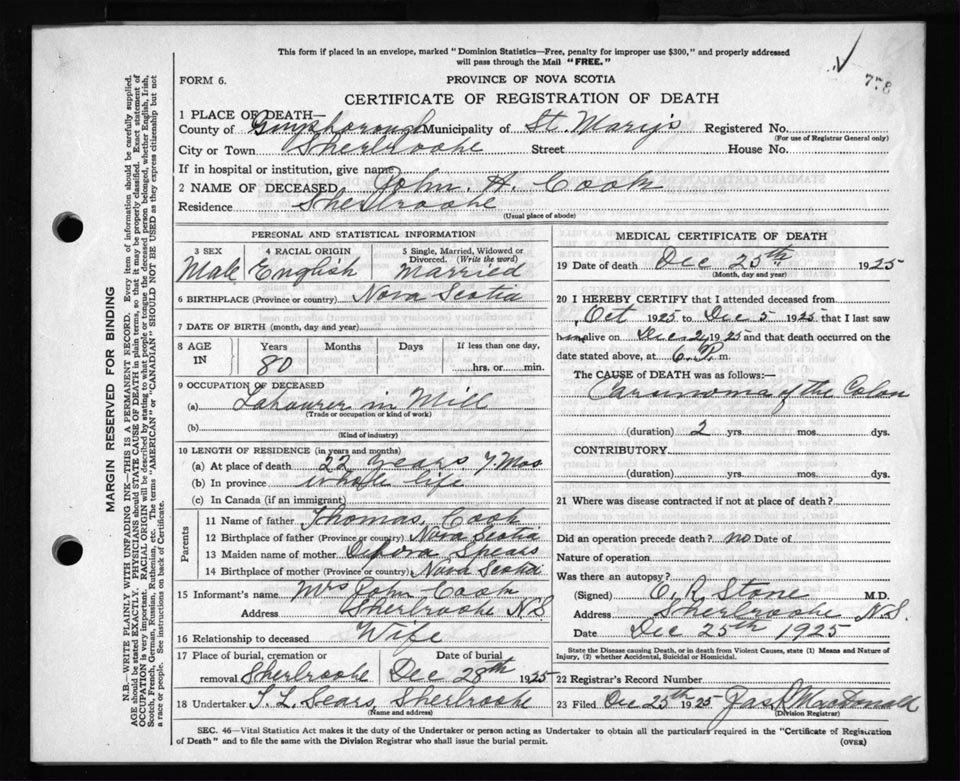 This form if placed in an envelope, marked "Dominion Statistics—Free, penalty for improper use $300," and properly addressed
will pass through the Mail "FREE."
FORM 6.
PROVINCE OF NOVA SCOTIA
758
CERTIFICATE OF REGISTRATION OF DEATH
1 PLACE OF DEATH—
County of Guysborough Municipality of St. Mary's Registered No.
(For use of Registrar General only)
City or Town Sherbrooke Street House No.
If in hospital or institution, give name
2 NAME OF DECEASED John A. Cook
Residence Sherbrooke
(Usual place of abode)
PERSONAL AND STATISTICAL INFORMATION
3 SEX Male
4 RACIAL ORIGIN English
5 Single, Married, Widowed or Divorced. (Write the word) Married
6 BIRTHPLACE (Province or country) Nova Scotia
7 DATE OF BIRTH (month, day and year)
8 AGE IN Years 80 Months Days If less than one day, hrs. or min.
9 OCCUPATION OF DECEASED
(a) Labourer in Mill
(Trade or occupation or kind of work)
(b)
(Kind of industry)
10 LENGTH OF RESIDENCE (in years and months)
(a) At place of death 22 years 7 Mos
(b) In province whole life
(c) In Canada (if an immigrant)
Parents
11 Name of father Thomas Cook
12 Birthplace of father (Province or country) Nova Scotia
13 Maiden name of mother Spears
14 Birthplace of mother (Province or country) Nova Scotia
15 Informant's name Mrs John Cook
Address Sherbrooke N.S.
16 Relationship to deceased Wife
17 Place of burial, cremation or removal Sherbrooke
Date of burial Dec 28th 1925
18 Undertaker T. L. Sears, Sherbrooke
(Name and address)
MEDICAL CERTIFICATE OF DEATH
19 Date of death Dec 25th 1925
(Month, day and year)
20 I HEREBY CERTIFY that I attended deceased from
Oct 1925 to Dec 5 1925 that I last saw
him alive on Dec 1925 and that death occurred on the
date stated above, at 6 P. m.
The CAUSE of DEATH was as follows:—
Carcinoma of the Colon
(duration) 2 yrs. mos. dys.
CONTRIBUTORY
(duration) yrs. mos. dys.
21 Where was disease contracted if not at place of death?
Did an operation precede death? no Date of
Nature of operation
Was there an autopsy?
(Signed) C. R. Stone M.D.
Address Sherbrooke N.S.
Date Dec 25th 1925
State the Disease causing Death, or in death from Violent Causes, state (1) Means and Nature of
Injury, (2) whether Accidental, Suicidal or Homicidal.
22 Registrar's Record Number
23 Filed Dec 25th 1925 Jas MacDonald
(Division Registrar)
SEC. 46—Vital Statistics Act makes it the duty of the Undertaker or person acting as Undertaker to obtain all the particulars required in the "Certificate of Registration
of Death" and to file the same with the Division Registrar who shall issue the burial permit.
(OVER)
MARGIN RESERVED FOR BINDING
N.B.—WRITE PLAINLY WITH UNFADING INK—THIS IS A PERMANENT RECORD. Every item of information should be carefully supplied.
AGE should be stated EXACTLY. PHYSICIANS should STATE CAUSE OF DEATH in plain terms, so that it may be properly classified. Exact statement of
OCCUPATION is very important. RACIAL ORIGIN will be described by stating to what people or tongue the deceased person belonged, whether English, Irish,
Scotch, French, German, Russian, Ruthenian, etc. The terms "AMERICAN" or "CANADIAN" SHOULD NOT BE USED as they express citizenship but not
a race or people. See instructions on back of Certificate.